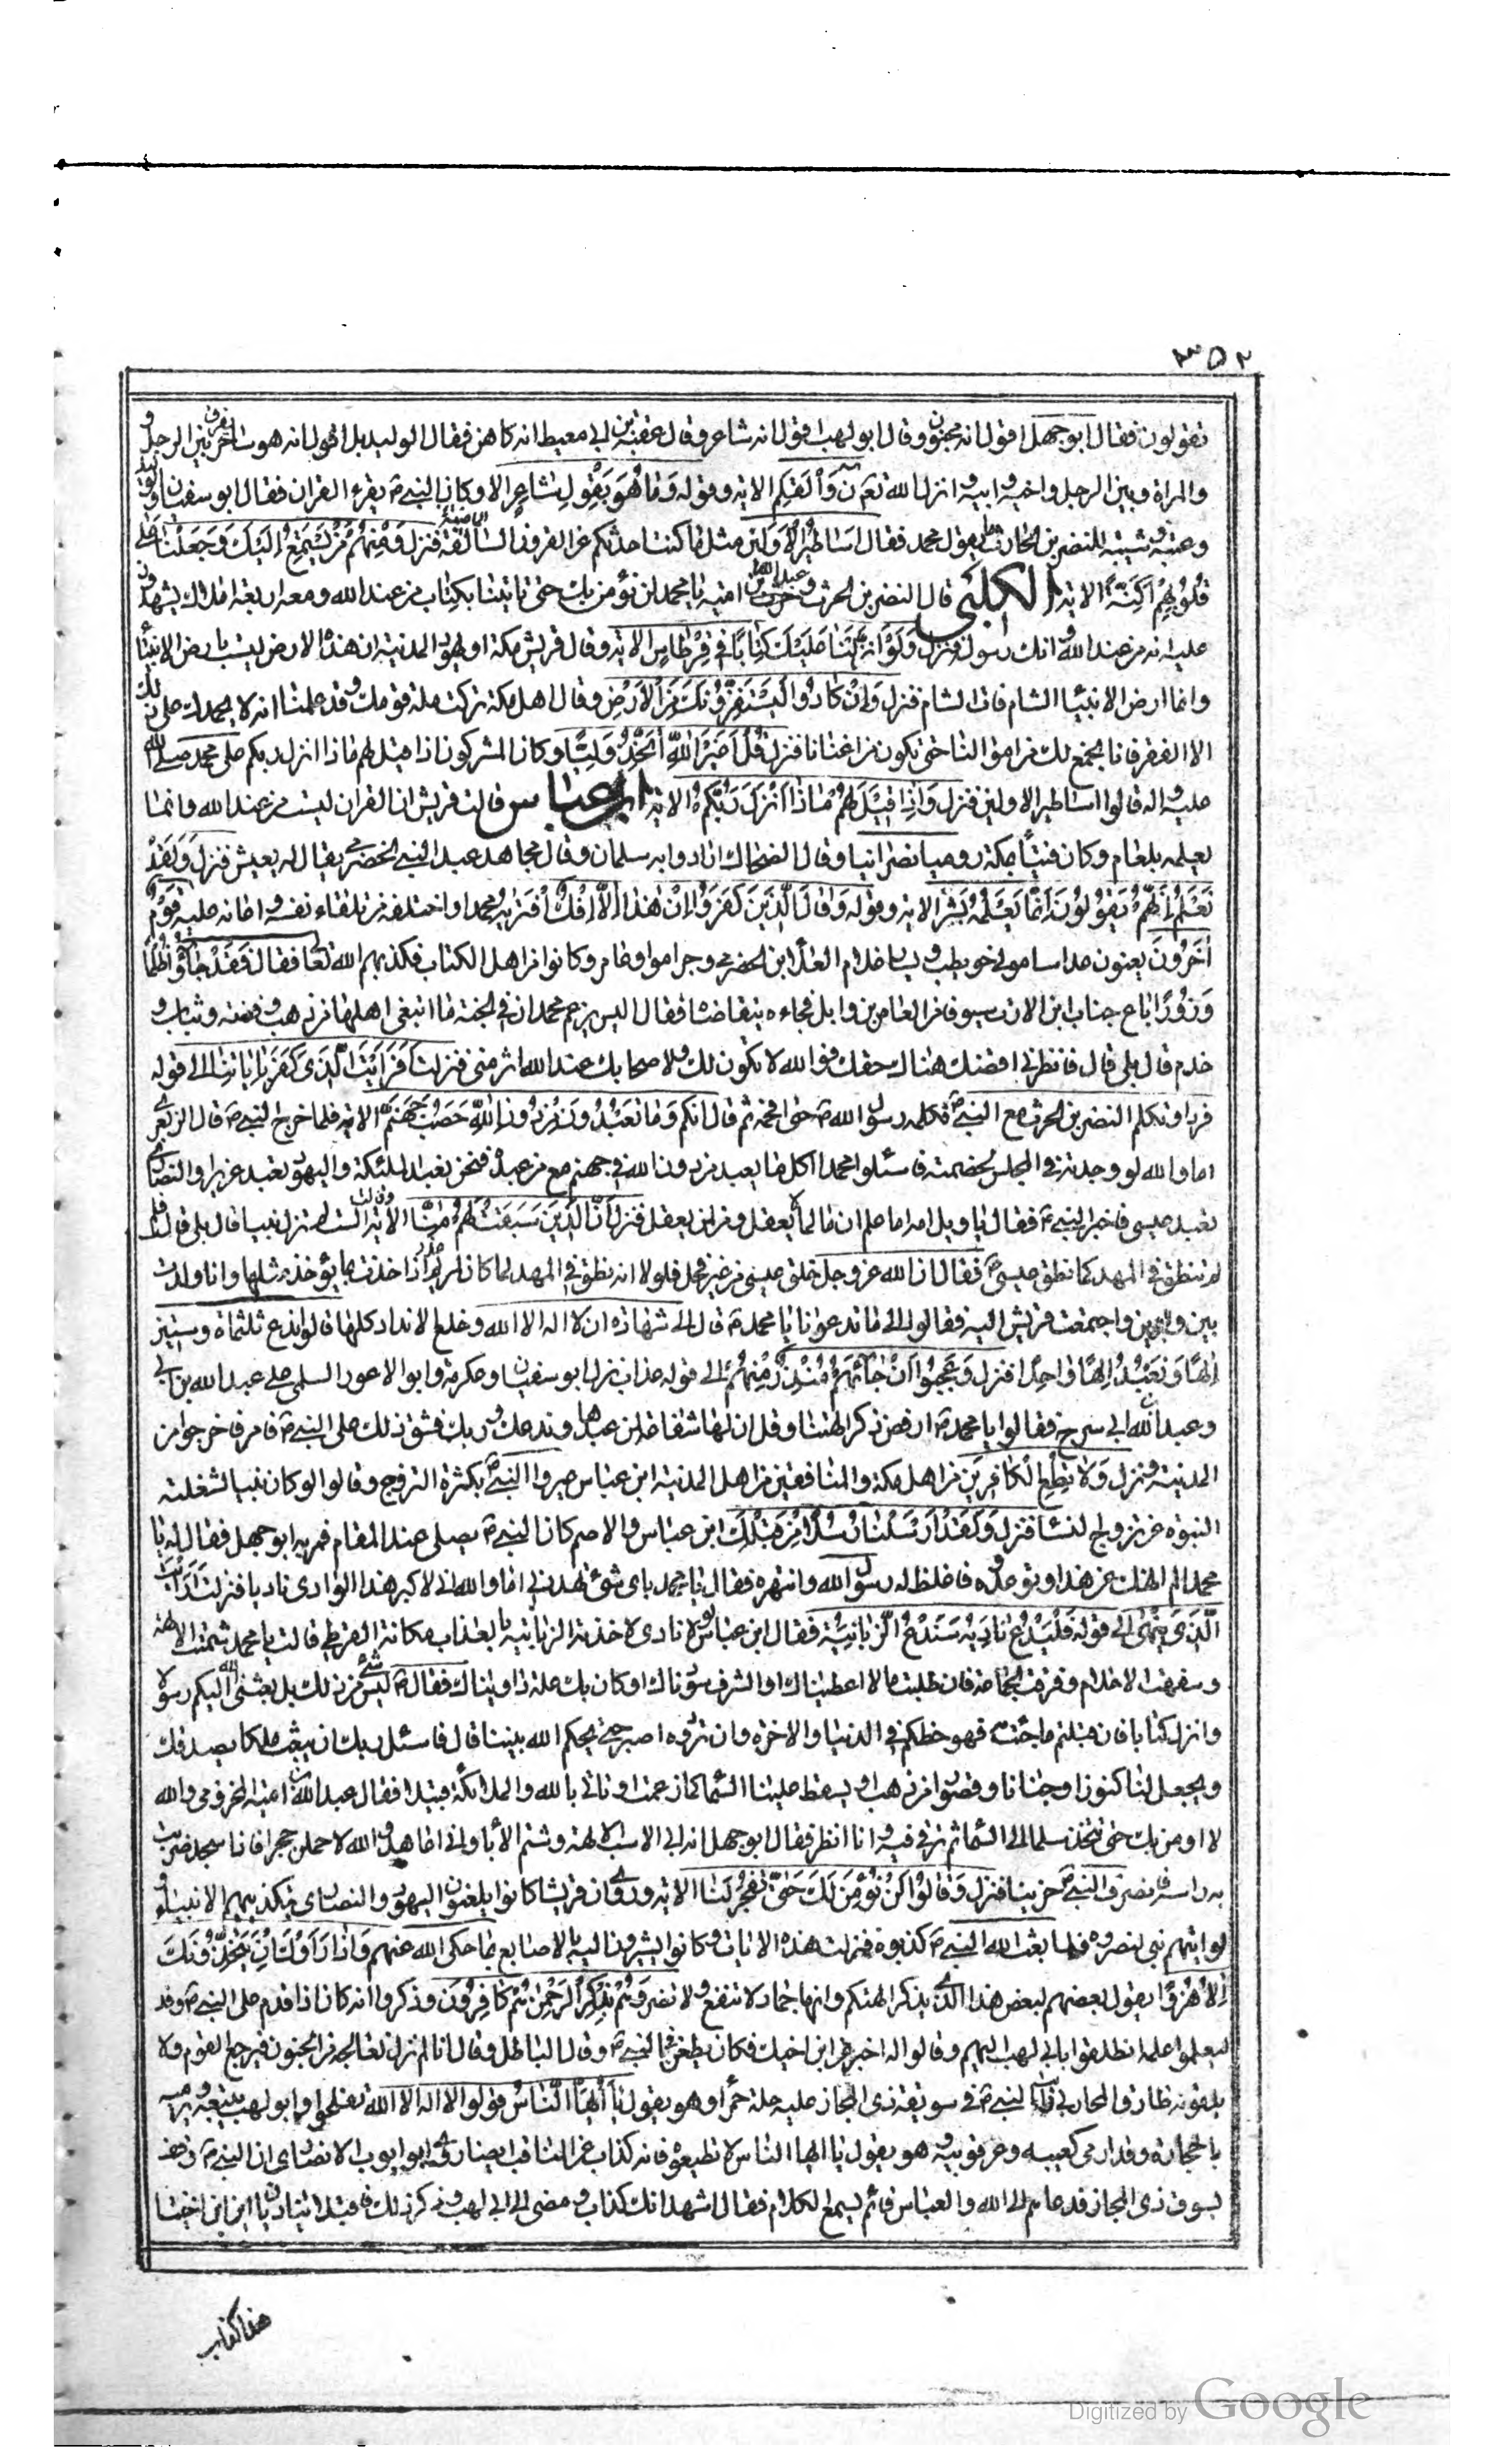 ٣٥٢
تقولون فقال ابو جهل اقول انه مجنون وقال ابو لهب اقول انه شاعر وقال عقبة بن ابي معيط انه كاهن فقال الوليد بل اقول انه هو ساحر يفرق بين الرجل و
والمراة وبين الرجل واخيه وابيه وانزل الله تعالى ن وَالْقَلَمِ الاية وقوله وَمَا هُوَ بِقَوْلِ شَاعِرٍ الاية وكان النبي ص يقرء القران فقال ابو سفيان والوليد
وعتبة وشيبة للنضر بن الحارث ما يقول محمد فقال اساطير الاولين مثل ما كنت احدثكم عن القرون الماضية فنزل وَمِنْهُمْ مَنْ يَسْتَمِعُ اِلَيْكَ وَجَعَلْنَا عَلى
قُلُوبِهِمْ اَكِنَّةً الاية الكلبي قال النضر بن الحرث وعبد الله بن امية يا محمد لن نؤمن بك حتى تاتينا بكتاب من عند الله ومعه اربعة املاك يشهدون
عليه انه من عند الله وانك رسوله فنزل وَلَوْ نَزَّلْنَا عَلَيْكَ كِتَابًا فِي قِرْطَاسٍ الاية وقال قريش مكة او يهود المدينة ان هذه الارض ليست بارض الانبياء
وانما ارض الانبياء الشام فات الشام فنزل وَاِنْ كَادُوا لَيَسْتَفِزُّونَكَ مِنَ الْاَرْضِ وقال اهل مكة تركت ملة قومك وقد علمنا انه لا يحملك على ذلك
الا الفقر فانا نجمع لك من اموالنا حتى تكون من اغنانا فنزل قُلْ اَغَيْرَ اللّٰهِ اَتَّخِذُ وَلِيًّا وكان المشركون اذا قيل لهم ماذا انزل ربكم على محمد صلى الله
عليه واله قالوا اساطير الاولين فنزل وَاِذَا قِيلَ لَهُمْ مَاذَا اَنْزَلَ رَبُّكُمْ الاية ابن عباس قالت قريش ان القران ليست من عند الله وانما
يعلمه بلعام وكان قينا بمكة روميا نصرانيا وقال الضحاك ارادوا به سلمان وقال مجاهد عبد لبني الحضرمي يقال له يعيش فنزل وَلَقَدْ
نَعْلَمُ اَنَّهُمْ يَقُولُونَ اِنَّمَا يُعَلِّمُهُ بَشَرٌ الاية وقوله وَقَالَ الَّذِينَ كَفَرُوا اِنْ هٰذَا اِلَّا اِفْكٌ افْتَرٰيهُ محمد او اختلقه من تلقاء نفسه وَاَعَانَهُ عَلَيْهِ قَوْمٌ
اٰخَرُونَ يعنون عداسا مولى حويطب ويسارا غلام العلاء ابن الحضرمي وحبرا مولى عامر وكانوا من اهل الكتاب فكذبهم الله تعالى فقال فَقَدْ جَاؤُا ظُلْمًا
وَزُورًا باع خباب ابن الارت سيوفا من العاص بن وايل فجاءه يتقاضاه فقال اليس يزعم محمد ان في الجنة ما ابتغى اهلها من ذهب وفضة وثياب و
خدم قال بلى قال فانظرني اقضك هناك حقك فو الله لا تكون لك ولا صحابك عند الله اثر مني فنزلت اَفَرَاَيْتَ الَّذِي كَفَرَ بِاٰيَاتِنَا الى قوله
فردا وتكلم النضر بن الحرث مع النبي ص فكلمه رسول الله ص حتى افحمه ثم قال اِنَّكُمْ وَمَا تَعْبُدُونَ مِنْ دُونِ اللّٰهِ حَصَبُ جَهَنَّمَ الاية فلما خرج النبي ص قال الزبعرى
اما والله لو وجدته في المجلس لخصمته فاسئلوا محمدا اكل ما يعبد من دون الله في جهنم مع من عبده فنحن نعبد الملئكة واليهود تعبد عزيرا والنصارى
تعبد عيسى فاخبر النبي ص فقال يا ويل امه اما علم ان ما لما لا يعقل ومن لمن يعقل فنزل اِنَّ الَّذِينَ سَبَقَتْ لَهُمْ مِنَّا الاية وقالت الست لم تزل نبيا قال بلى قالت فلم
لم تنطق في المهد كما نطق عيسى ع فقال ان الله عز وجل خلق عيسى من غير فحل فلولا انه نطق في المهد لما كان لمريم عذر اذا اخذت بما يؤخذ به مثلها وانا ولدت
بين ابوين واجتمعت قريش اليه فقالوا الى ما تدعونا يا محمد ص قال الى شهادة ان لا اله الا الله وخلع الانداد كلها قالوا ندع ثلثماة وستين
الها ونعبد الها واحدا فنزل وَعَجِبُوا اَنْ جَائَهُمْ مُنْذِرٌ مِنْهُمْ الى قوله عذاب نزل ابو سفيان وعكرمة وابو الاعور السلمي على عبد الله بن ابي
وعبد الله بن ابي سرح فقالوا يا محمد ص ارفض ذكر الهتنا وقل ان لها شفاعة لمن عبدها وندعك وربك فشق ذلك على النبي ص فامر فاخرجوا من
المدينة ونزل وَلَا تُطِعِ الْكَافِرِينَ من اهل مكة والمنافقين من اهل المدينة ابن عباس عيروا النبي ص بكثرة التزوج وقالوا لو كان نبيا لشغلته
النبوة عن تزويج النساء فنزل وَلَقَدْ اَرْسَلْنَا رُسُلًا مِنْ قَبْلِكَ ابن عباس والاصم كان النبي ص يصلي عند المقام فمر به ابو جهل فقال له يا
محمد الم انهك عن هذا وتوعده فاغلظ له رسول الله وانتهره فقال يا محمد باي شئ تهددني اما والله اني لاكبر هذا الوادي ناديا فنزلت اَرَاَيْتَ
الَّذِي يَنْهٰى الى قوله فَلْيَدْعُ نَادِيَهُ سَنَدْعُ الزَّبَانِيَةَ فقال ابن عباس لو نادى لاخذته الزبانية بالعذاب مكانه القرظي قالت يا محمد شتمت الالهة
وسفهت الاحلام وفرقت الجماعة فان طلبت مالا اعطيناك او الشرف سودناك او كان بك علة داويناك فقال ص ليس شئ من ذلك بل بعثني الله اليكم رسولا
وانزل كتابا فان قبلتم ما جئت به فهو حظكم في الدنيا والاخرة وان تردوه اصبر حتى يحكم الله بيننا قال فاسئل ربك ان يبعث ملكا يصدقك
ويجعل لنا كنوزا وجنانا وقصورا من ذهب او يسقط علينا السماء كما زعمت او تاتي بالله والملائكة قبيلا فقال عبد الله بن امية المخزومي والله
لا اومن بك حتى تتخذ سلما الى السماء ثم ترقى فيه وانا انظر فقال ابو جهل انه ابى الا سب الالهة وشتم الاباء واني اعاهد الله لاحملن حجرا فاذا سجد ضربت
به راسه فانصرف النبي ص حزينا فنزل وَقَالُوا لَنْ نُؤْمِنَ لَكَ حَتّٰى تَفْجُرَ لَنَا الاية وروي ان قريشا كانوا يلعنون اليهود والنصارى بتكذيبهم الانبياء و
لو اتيهم نبي لنصروه فلما بعث الله النبي ص كذبوه فنزلت هذه الايات وكانوا يشيرون اليه بالاصابع بما حكى الله عنهم وَاِذَا رَاَوْكَ اِنْ يَتَّخِذُونَكَ
اِلَّا هُزُوًا يقول بعضهم لبعض هذا الذي يذكر الهتكم وانها جماد لا تنفع ولا تضر وَهُمْ بِذِكْرِ الرَّحْمٰنِ هُمْ كَافِرُونَ وذكروا انه كان اذا قدم على النبي ص وفد
ليعلموا علمه انطلقوا بابي لهب اليهم وقالوا له اخبر عن ابن اخيك فكان يطعن في النبي ص وقال الباطل وقال انا لم نزل نعالجه من الجنون فيرجع القوم ولا
يلقونه طارق المحاربي رايت النبي ص في سويقة ذي المجاز عليه حلة حمراء وهو يقول يا ايها الناس قولوا لا اله الا الله تفلحوا وابو لهب يتبعه ويرميه
بالحجارة وقد ادمى كعبيه وعرقوبيه وهو يقول يا ايها الناس لا تطيعوه فانه كذاب
بسوق ذي المجاز فدعاهم الى الله والعباس قائم يسمع الكلام فقال اشهد انك كذاب ومضى الى ابي لهب وذكر ذلك فاقبلا يناديان ان ابن اخينا
هذا كذاب
Digitized by Google